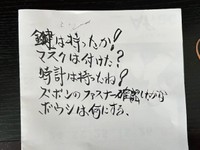 鍵は持ったか?
マスクは付けた?
時計は持ったね?
ズボンのファスナー確認したか
ボウシは何にする、